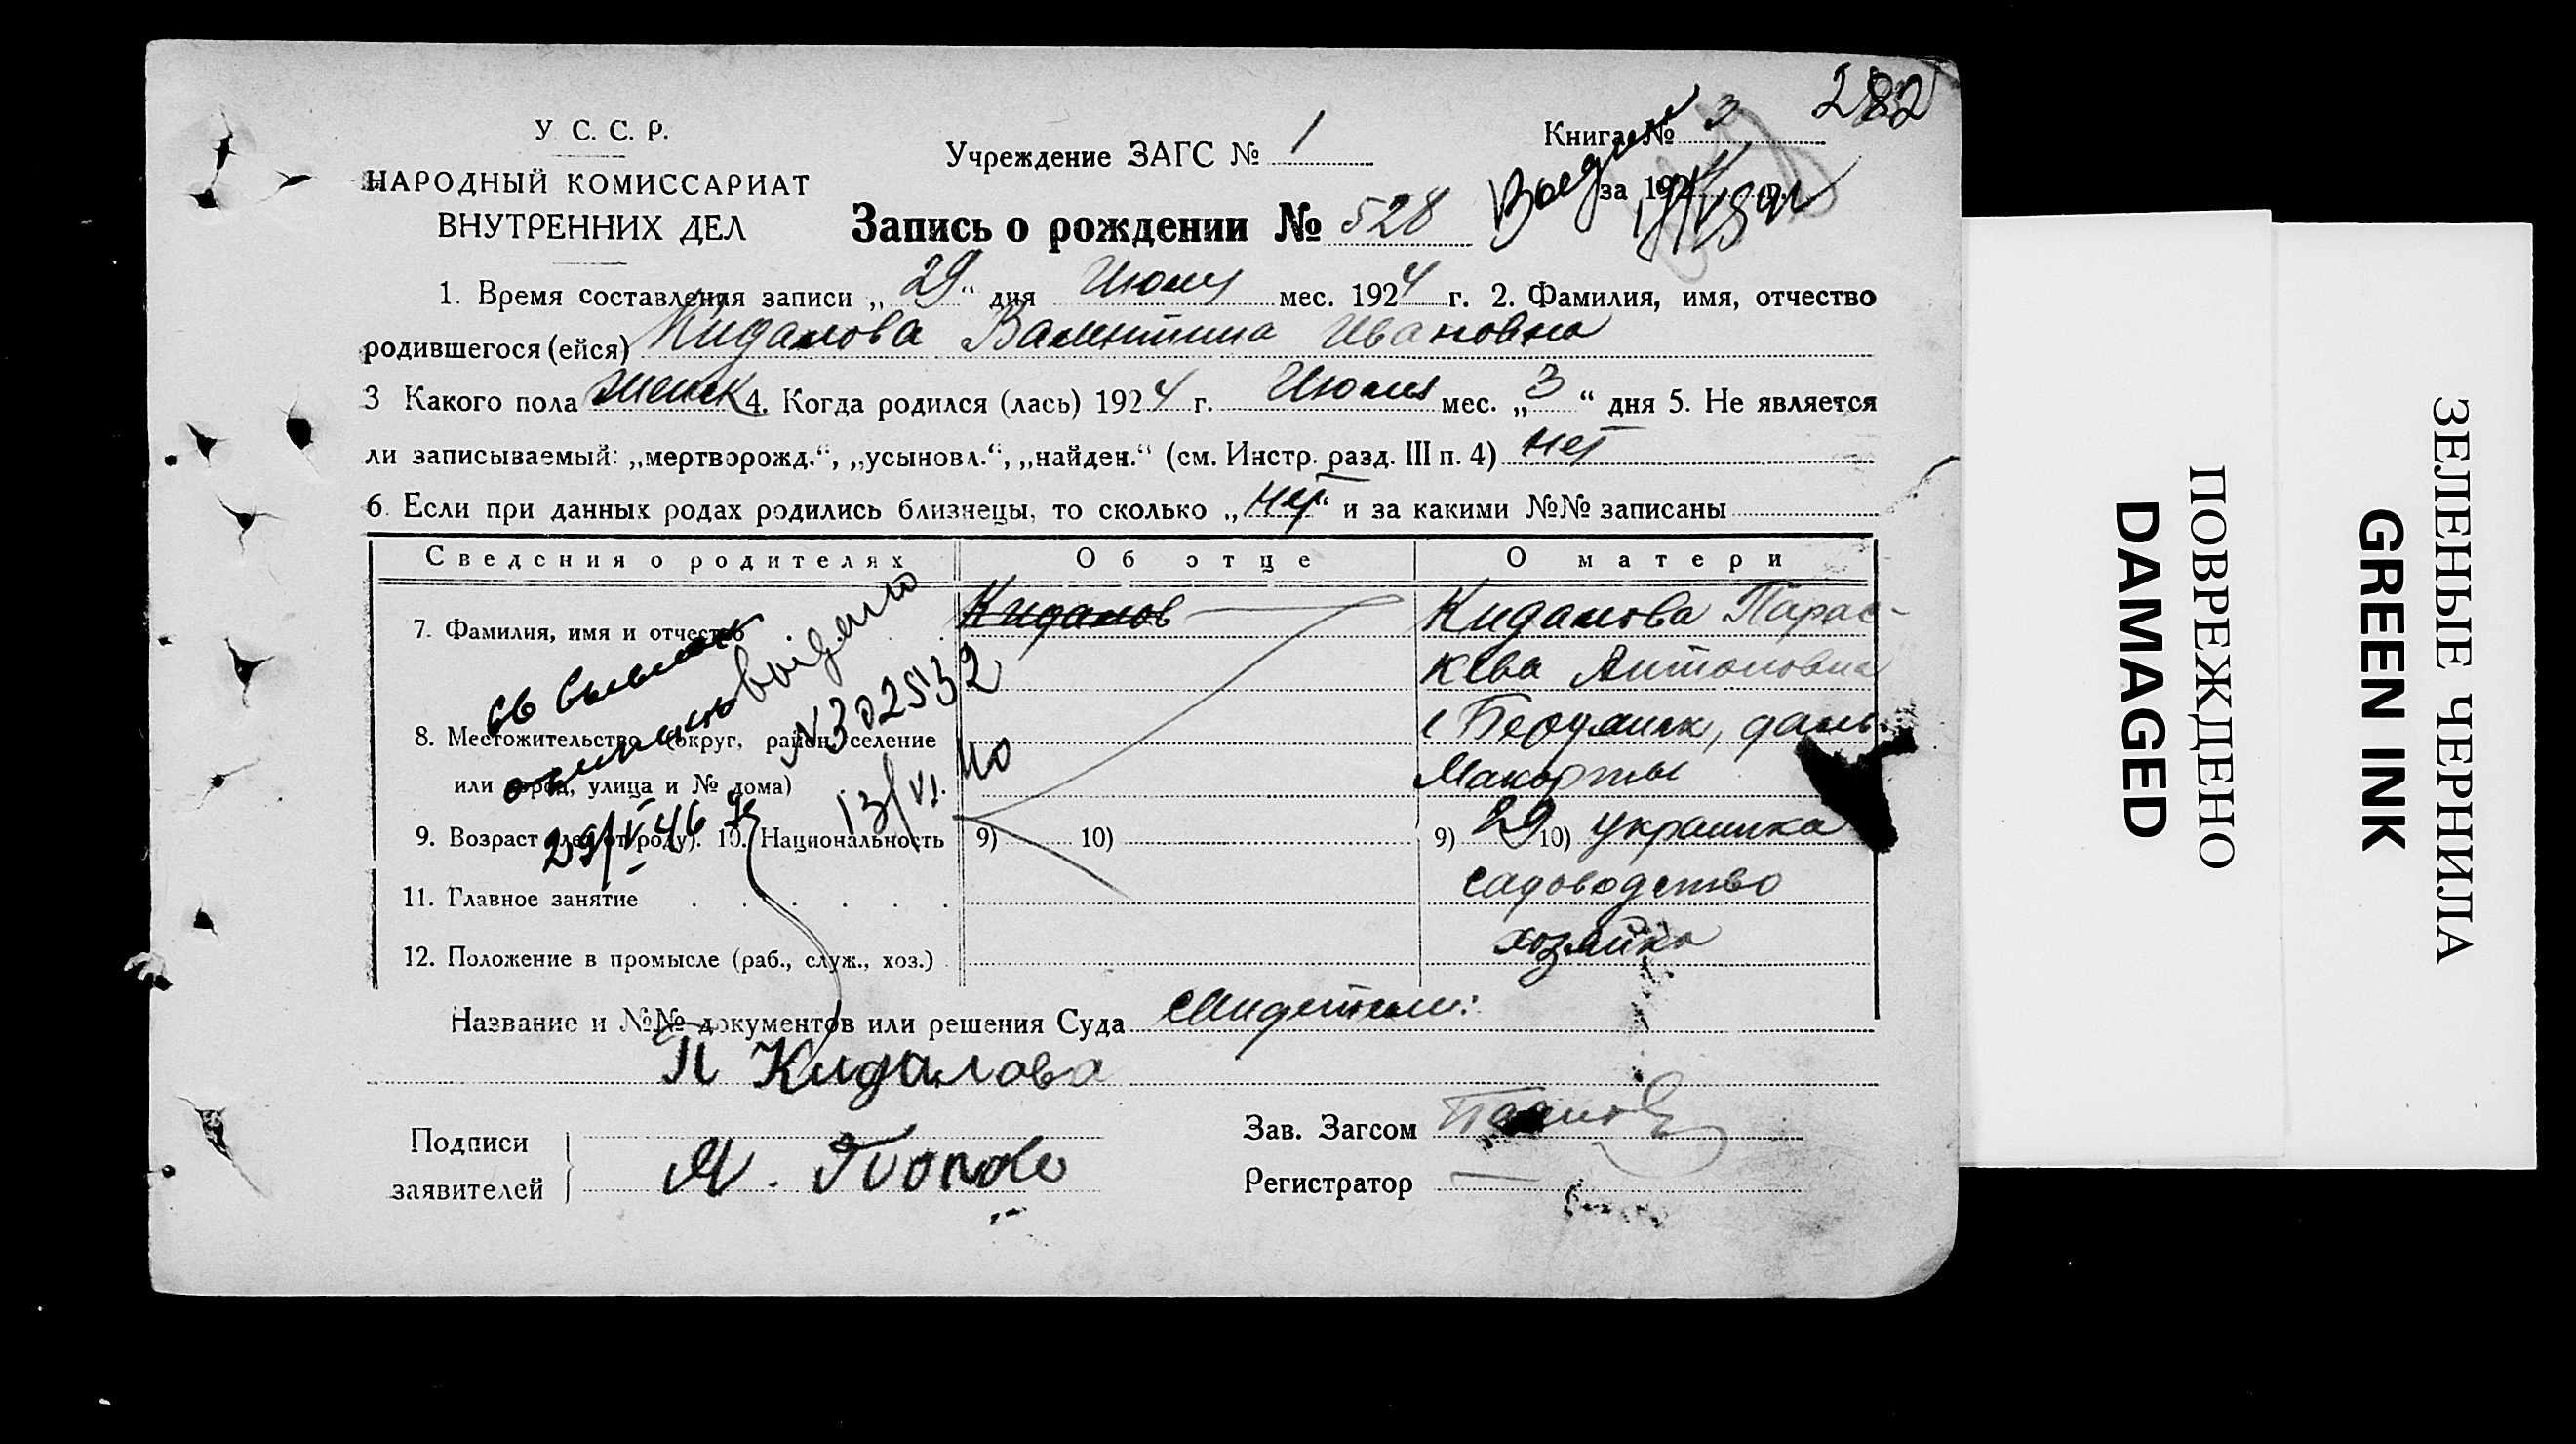 282
У. С. С. Р.
НАРОДНЫЙ КОМИССАРИАТ
ВНУТРЕННИХ ДЕЛ
Учреждение ЗАГС № 1
Книга № 3
за 1924
Запись о рождении № 528
1. Время составления записи „29“ дня Июля мес. 1924 г. 2. Фамилия, имя, отчество
родившегося (ейся) Кидалова Валентина Ивановна
3 Какого пола женск 4. Когда родился (лась) 1924 г. Июля мес. „3“ дня 5. Не является
ли записываемый: „мертворожд.“, „усыновл.“, „найден.“ (см. Инстр. разд. III п. 4) нет
6. Если при данных родах родились близнецы, то сколько „нет“ и за какими №№ записаны
Сведения о родителях Об отце О матери
7. Фамилия, имя и отчество Кидалов Кидалова Парас-
кева Антоновна
8. Местожительство (округ, район, селение г Бердянск, даль.
или город, улица и № дома) Макорты
9. Возраст (лет от роду). 10. Национальность 9) 10) 9) 29 10) украинка
11. Главное занятие садоводство
12. Положение в промысле (раб., служ., хоз.) хозяйка
выдано
№302532
13/VI. 40
29/V-46
Название и №№ документов или решения Суда свидетели:
П Кидалова
Подписи
заявителей
Зав. Загсом
Регистратор
ПОВРЕЖДЕНО
DAMAGED
ЗЕЛЕНЫЕ ЧЕРНИЛА
GREEN INK